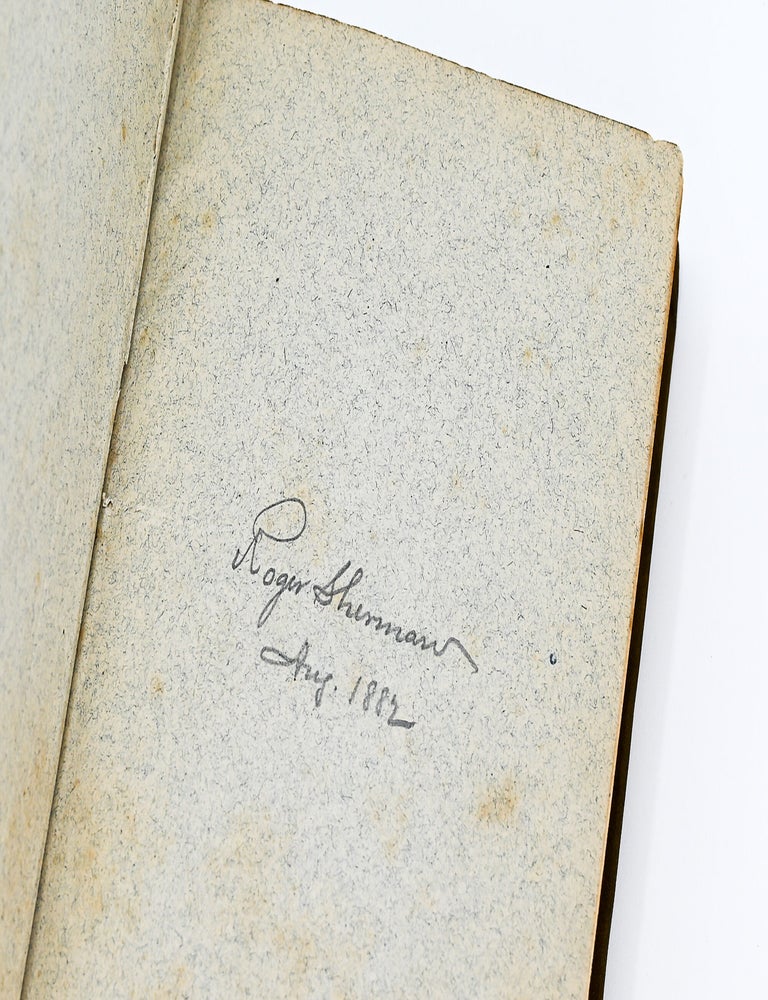 Roger Sherman
Aug. 1882